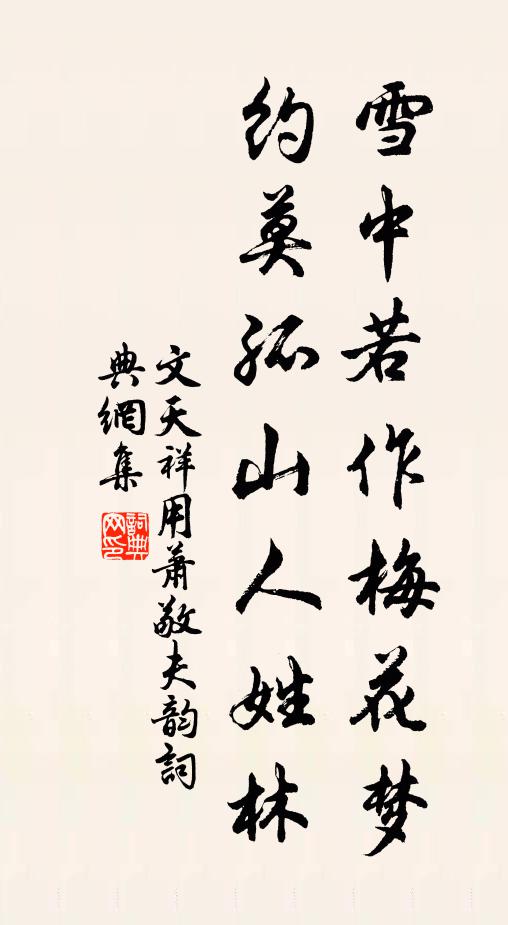 雪中若作梅花梦
约莫孤山人姓林
文天祥用萧敬夫韵词
典網集
詞典网印